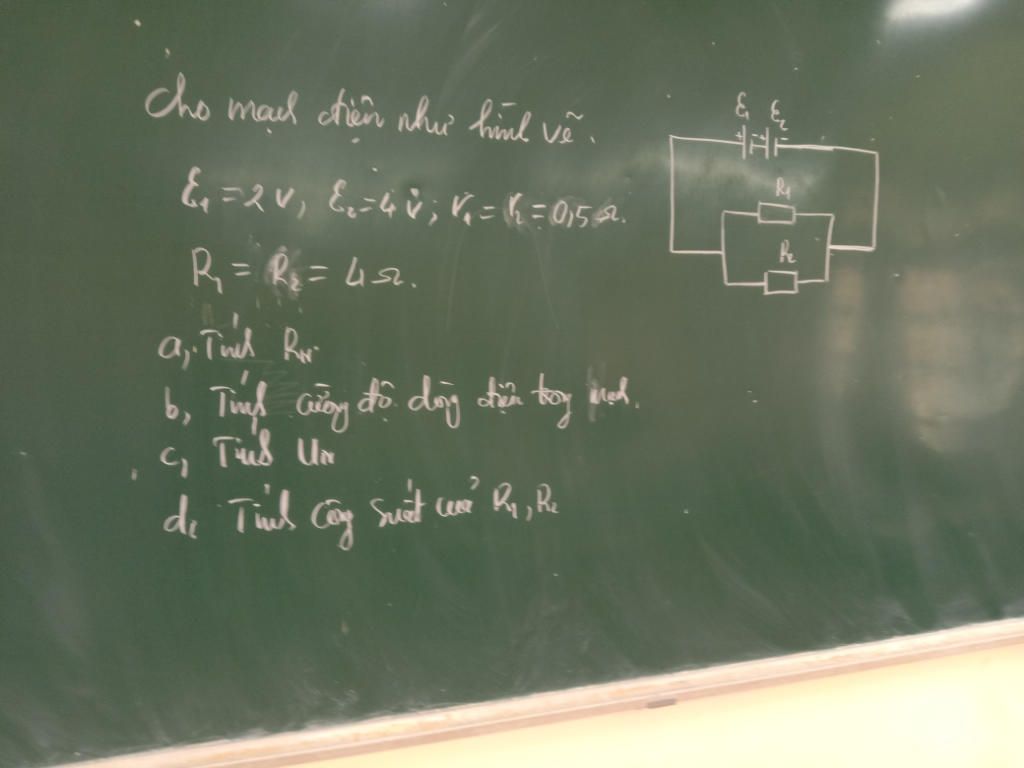 Cho mạch điện như hình vẽ.
ℰ₁ = 2 V, ℰ₂ = 4 V; r₁ = r₂ = 0,5 Ω.
R₁ = R₂ = 4 Ω.
a, Tính R_N.
b, Tính cường độ dòng điện trong mạch.
c, Tính U_N
d, Tính công suất của R₁, R₂
ℰ₁ ℰ₂
+ - + -
R₁
R₂